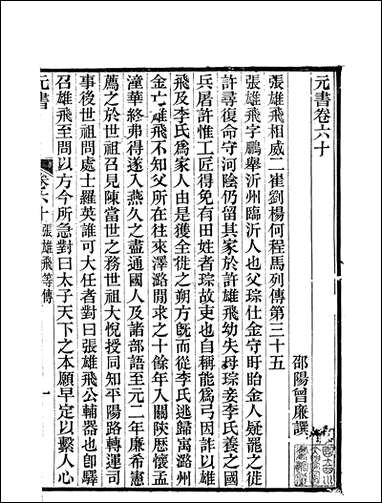 元書卷六十
邵陽曾廉譔
張雄飛相威二崔劉楊何程馬列傳第三十五
張雄飛字鵬舉沂州臨沂人也父琮仕金守盱眙金人疑罷之徙
許尋復命守河陰仍留其家於許雄飛幼失母琮妾李氏養之國
兵屠許惟工匠得免有田姓者琮故吏也自稱能為弓因詐以雄
飛及李氏為家人以獲全徙之朔方旣而從李氏逃歸寓潞州
金亡雄飛不知父所在往來澤潞閒求之十餘年入關陝歷懷孟
潼華終弗得遂入燕久之盡通國人及諸部語至元二年廉希憲
薦之於世祖召見陳當世之務世祖大悅授同知平陽路轉運司
事後世祖問處士羅英誰可大任者對曰張雄飛公輔器也卽驛
召雄飛至問以方今所急對曰太子天下之本願早定以繫人心
元書
卷六十 張雄飛等傳
一